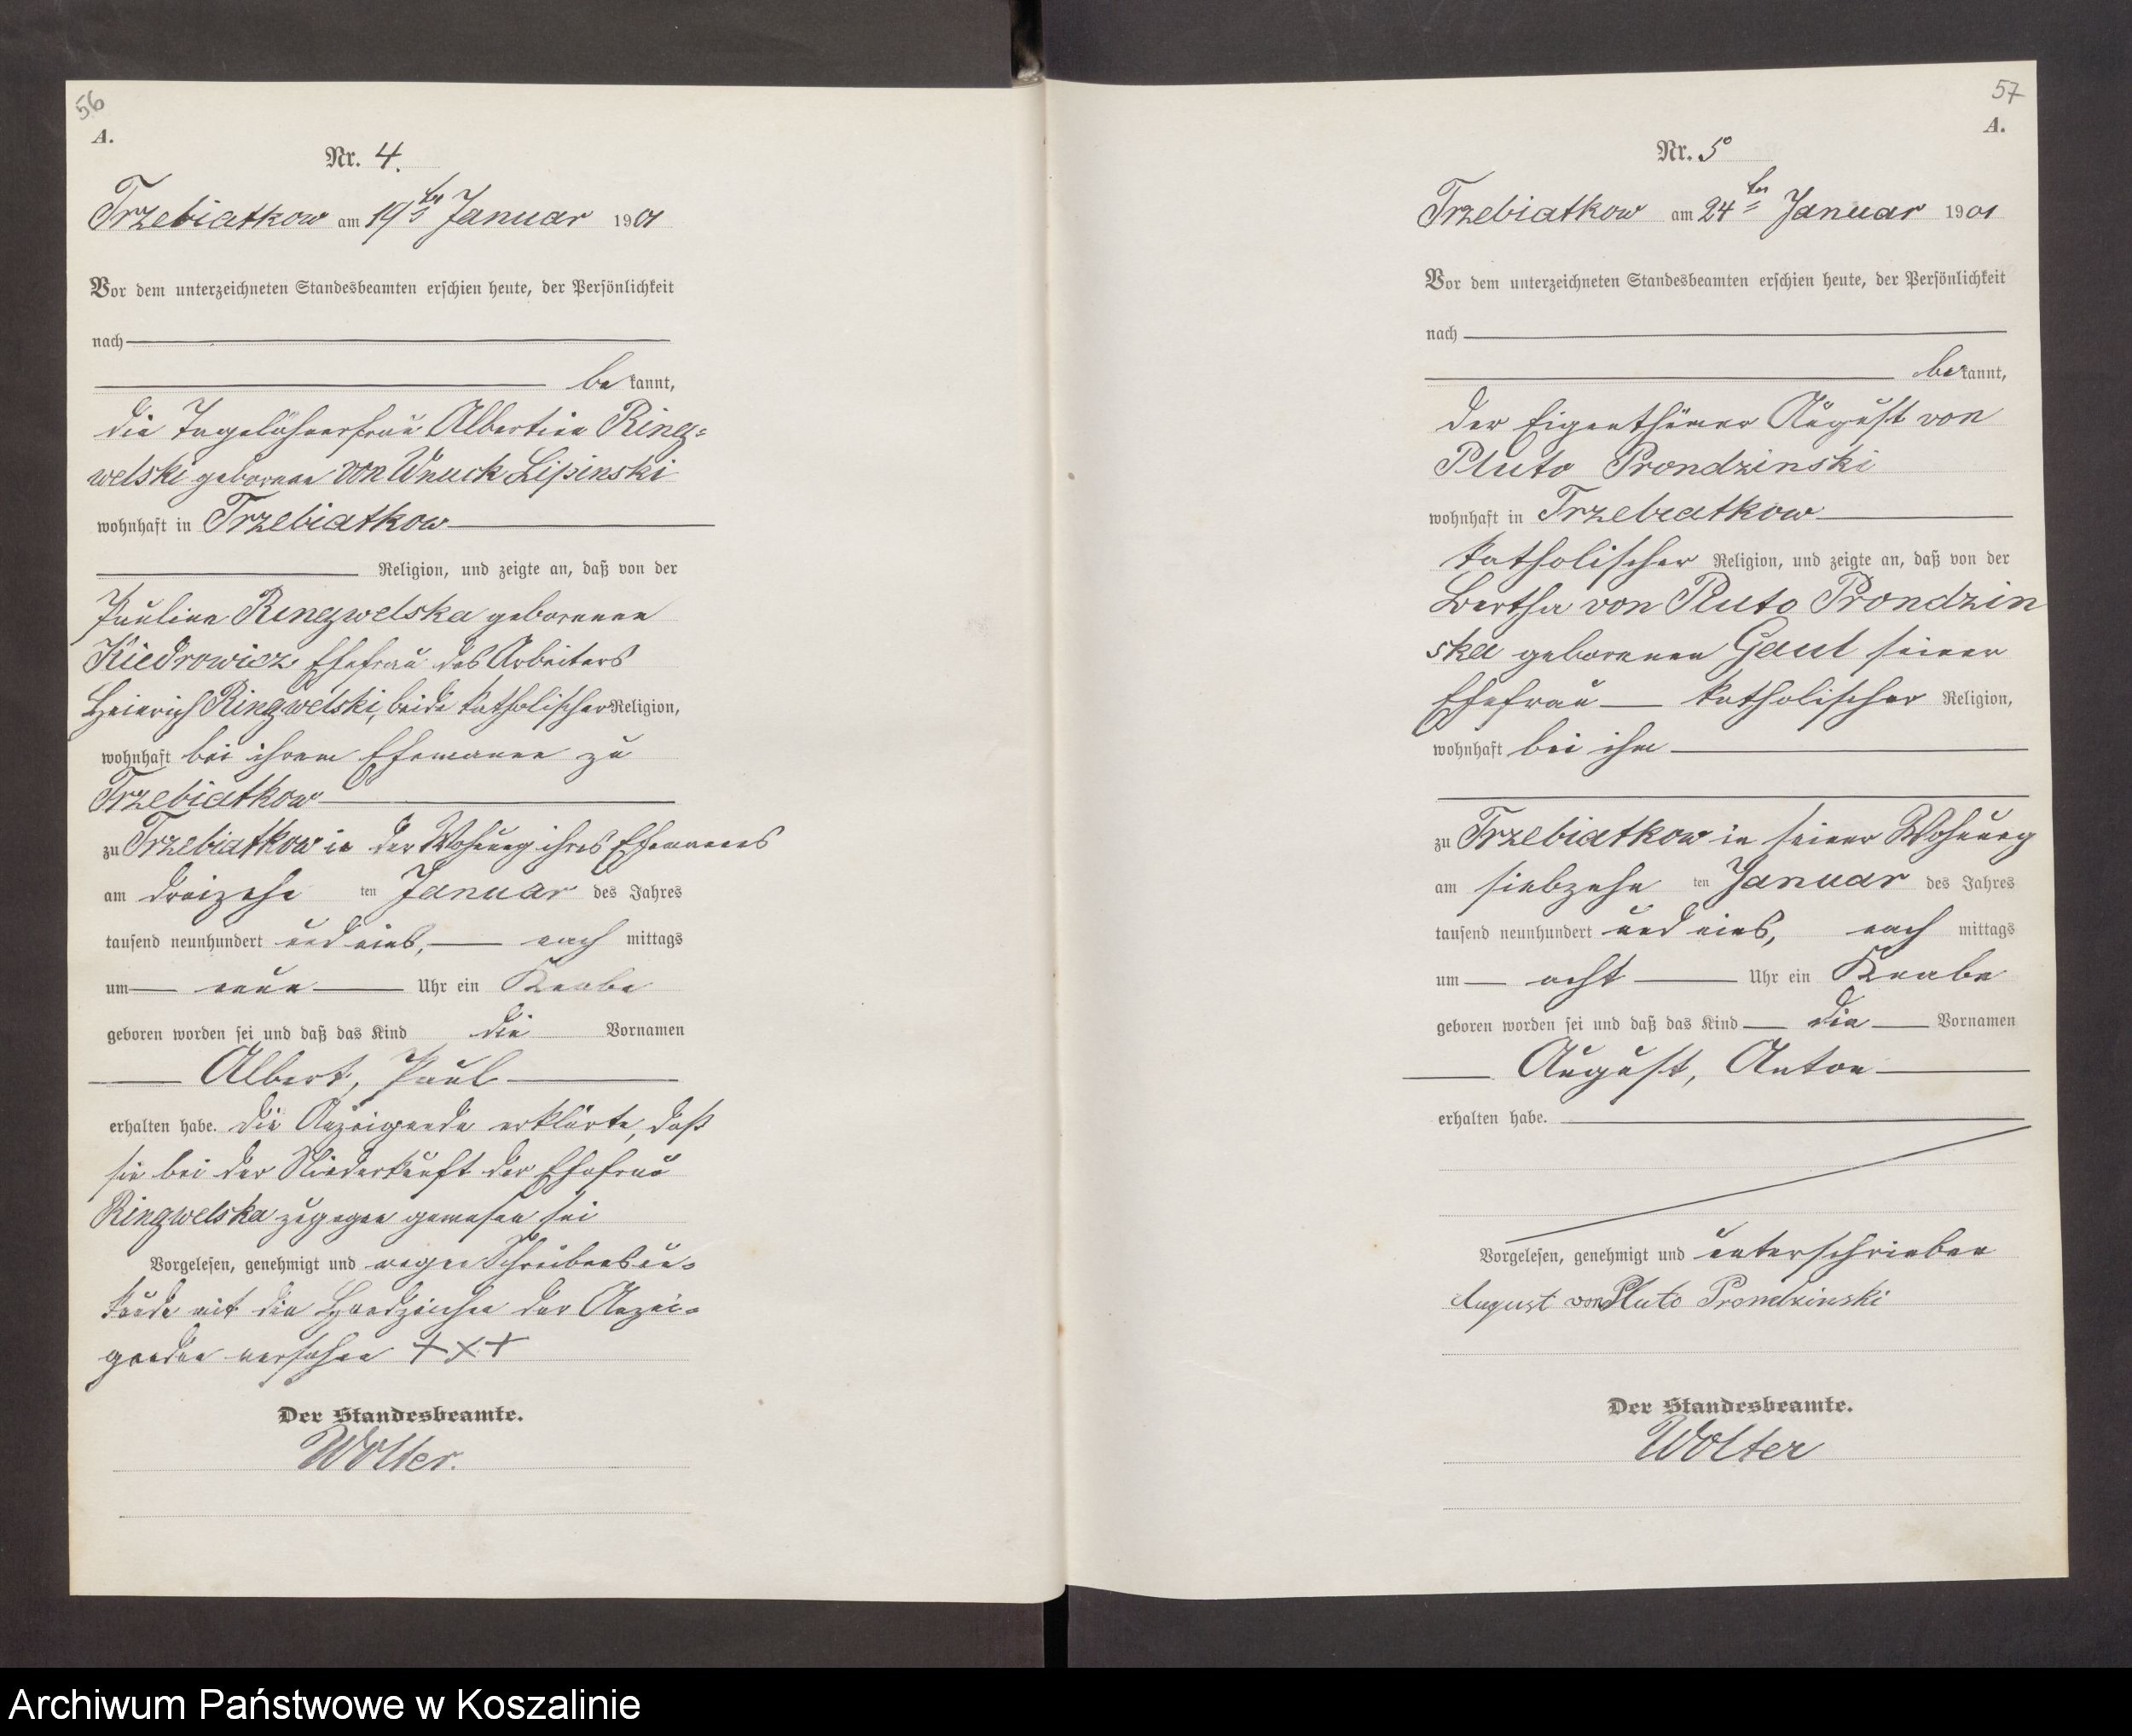 56
A.
Nr. 4.
Trzebiatkow am 19ten Januar 1901
Vor dem unterzeichneten Standesbeamten erschien heute, der Persönlichkeit
nach
bekannt,
die Tagelöhnerfrau Albertine Ring=
welski geborene von Wnuck Lipinski
wohnhaft in Trzebiatkow
Religion, und zeigte an, daß von der
Pauline Ringwelska geborenen
Kiedrowicz Ehefrau des Arbeiters
Heinrich Ringwelski, beide katholischer Religion,
wohnhaft bei ihrem Ehemanne zu
Trzebiatkow
zu Trzebiatkow in der Wohnung ihres Ehemannes
am dreizehn ten Januar des Jahres
tausend neunhundert und eins, nach mittags
um neun Uhr ein Knabe
geboren worden sei und daß das Kind die Vornamen
Albert, Paul
erhalten habe. Die Anzeigende erklärte, daß
sie bei der Niederkunft der Ehefrau
Ringwelska zugegen gewesen sei
Vorgelesen, genehmigt und wegen Schreibensun=
kunde mit den Handzeichen der Anzei=
genden versehen +++
Der Standesbeamte.
Wolter.
57
A.
Nr. 5
Trzebiatkow am 24ten Januar 1901
Vor dem unterzeichneten Standesbeamten erschien heute, der Persönlichkeit
nach
bekannt,
der Eigenthümer August von
Pluto Prondzinski
wohnhaft in Trzebiatkow
katholischer Religion, und zeigte an, daß von der
Bertha von Pluto Prondzin
ska geborenen Gaul seiner
Ehefrau katholischer Religion,
wohnhaft bei ihm
zu Trzebiatkow in seiner Wohnung
am siebzehn ten Januar des Jahres
tausend neunhundert und eins, nach mittags
um acht Uhr ein Knabe
geboren worden sei und daß das Kind die Vornamen
August, Anton
erhalten habe.
Vorgelesen, genehmigt und unterschrieben
August von Pluto Prondzinski
Der Standesbeamte.
Wolter
Archiwum Państwowe w Koszalinie